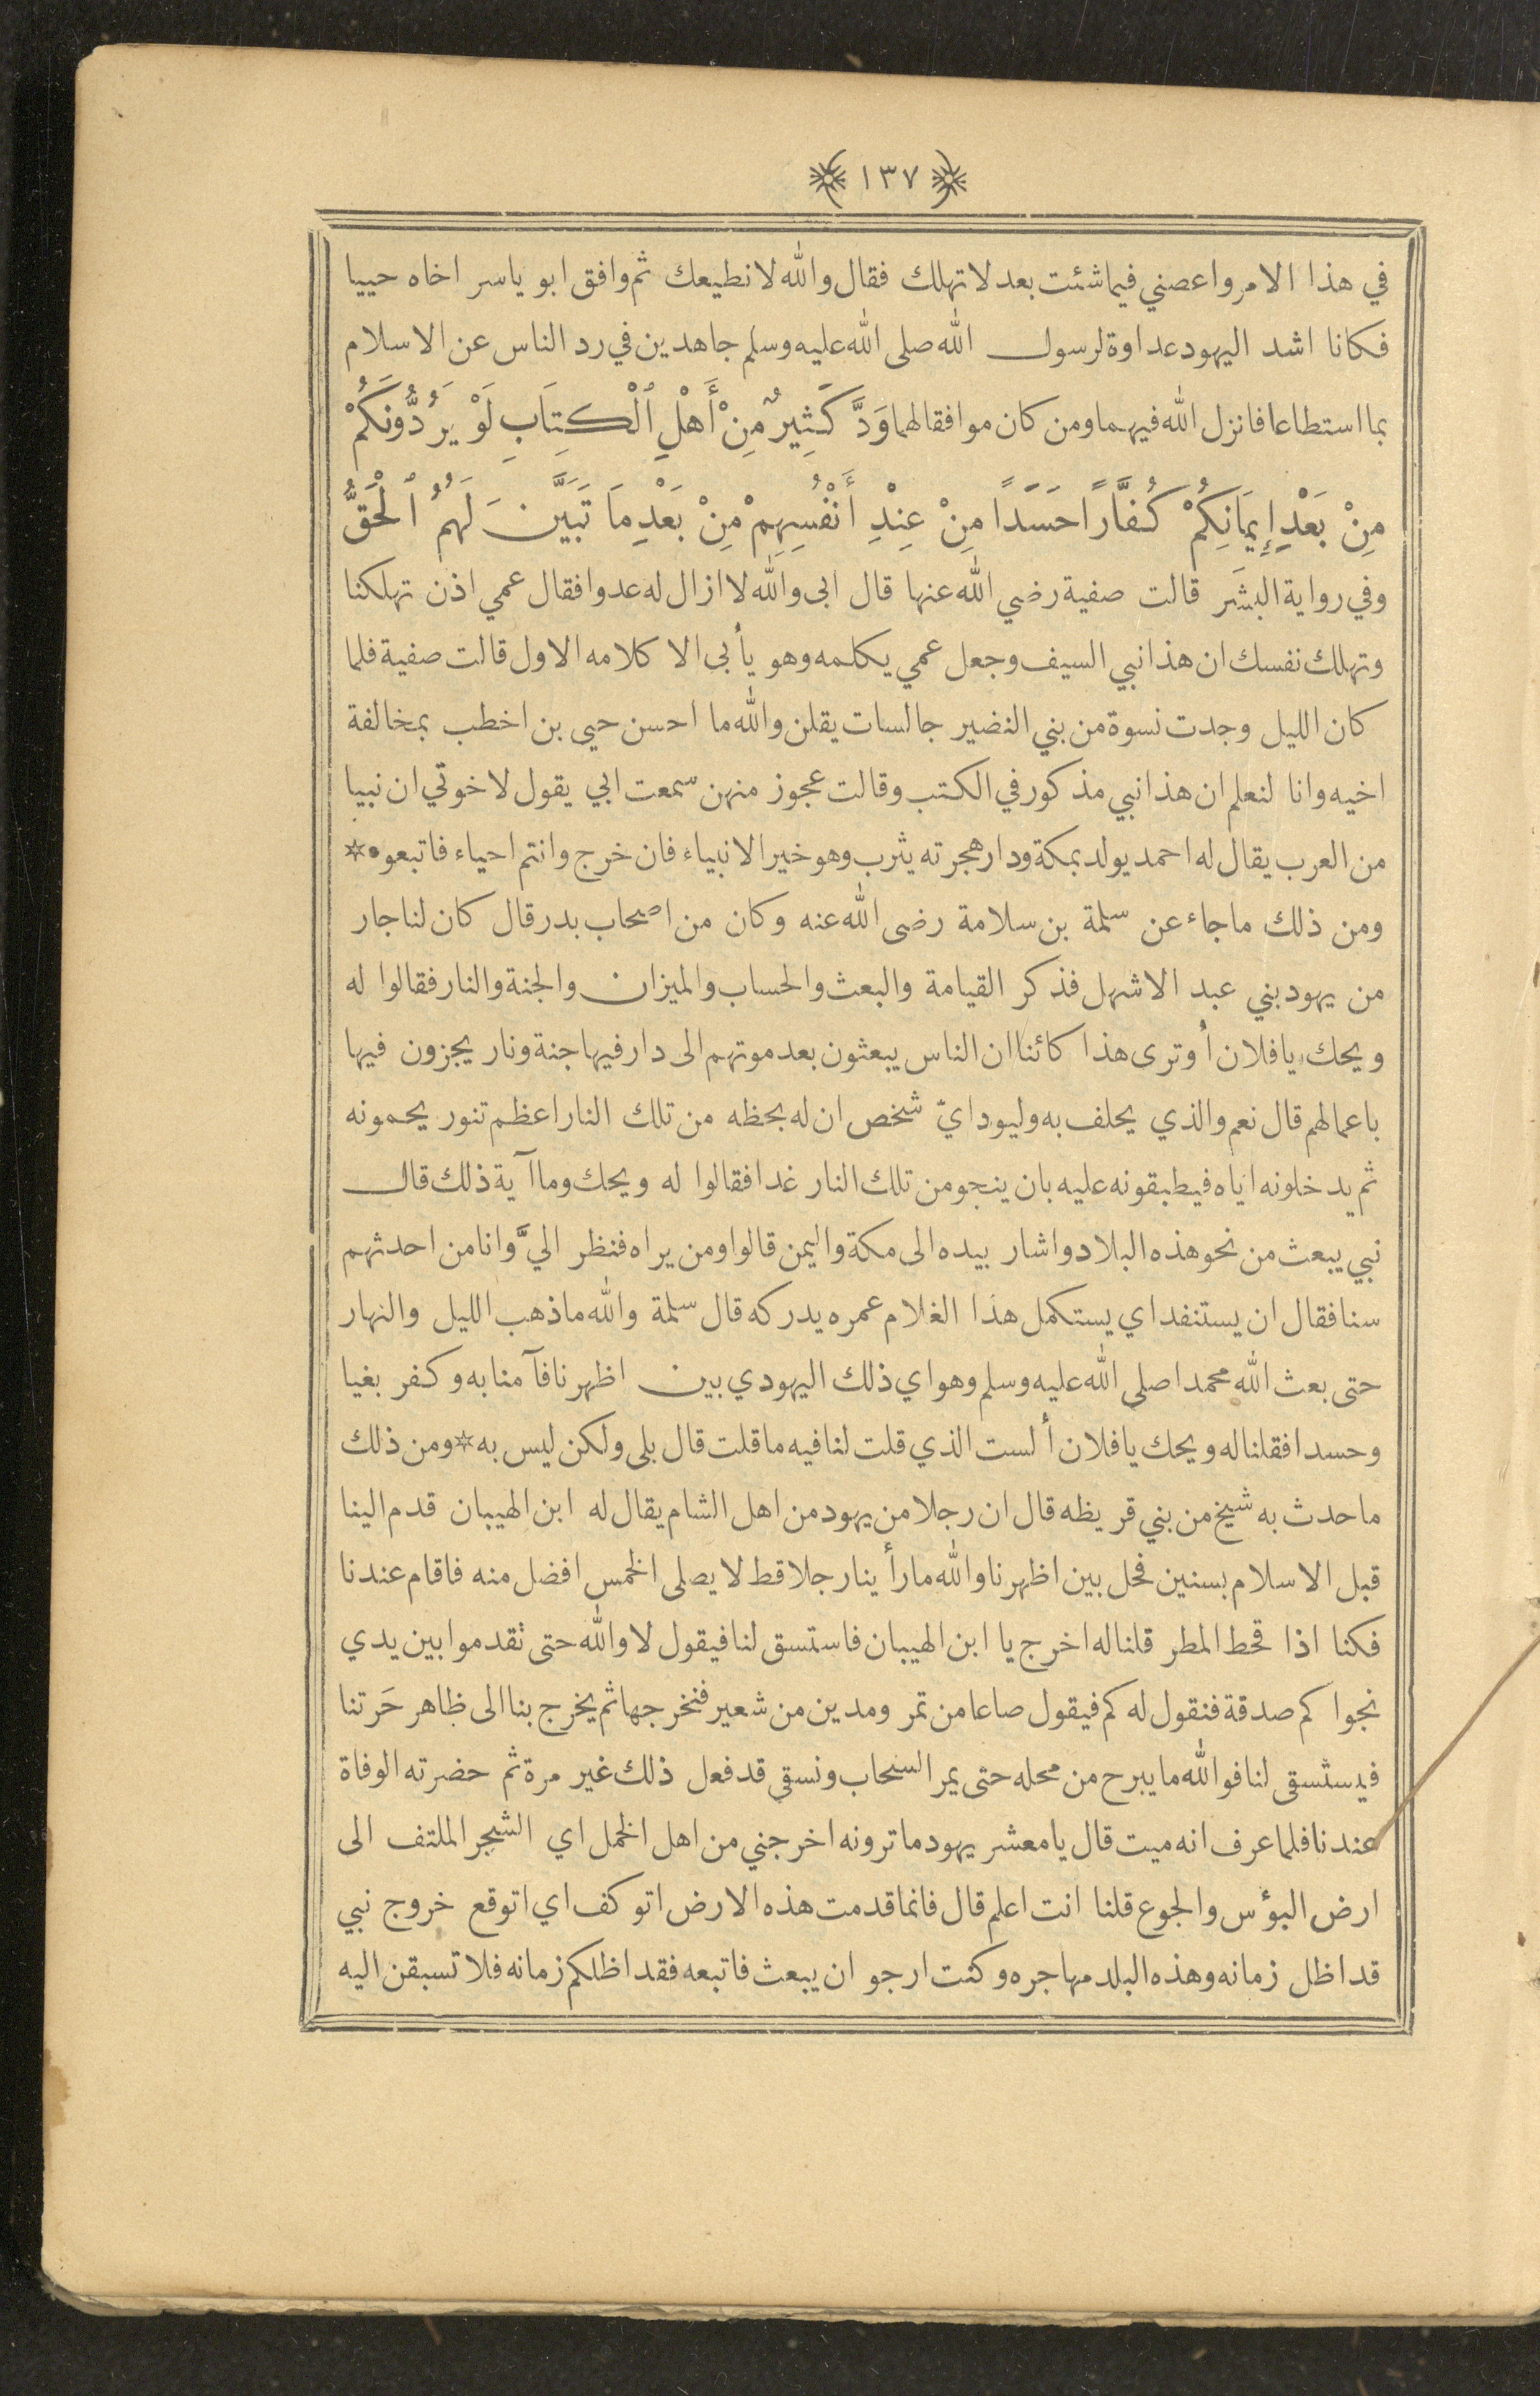 ١٣٧
في هذا الامر واعصني فيما شئت بعد لا تهلك فقال والله لا نطيعك ثم وافق ابو ياسر اخاه حييا
فكانا اشد اليهود عداوة لرسول الله صلى الله عليه وسلم جاهدين في رد الناس عن الاسلام
بما استطاعا فانزل الله فيهما ومن كان موافقا لهما وَدَّ كَثِيرٌ مِنْ أَهْلِ ٱلْكِتَابِ لَوْ يَرُدُّونَكُمْ
مِنْ بَعْدِ إِيمَانِكُمْ كُفَّارًا حَسَدًا مِنْ عِنْدِ أَنْفُسِهِمْ مِنْ بَعْدِ مَا تَبَيَّنَ لَهُمُ ٱلْحَقُّ
وفي رواية البشَر قالت صفية رضي الله عنها قال ابى والله لا ازال له عدوا فقال عمي اذن تهلكنا
وتهلك نفسك ان هذا نبي السيف وجعل عمي يكلمه وهو يأبى الا كلامه الاول قالت صفية فلما
كان الليل وجدت نسوة من بني النضير جالسات يقلن والله ما احسن حيى بن اخطب بمخالفة
اخيه وانا لنعلم ان هذا نبي مذكور في الكتب وقالت عجوز منهن سمعت ابي يقول لاخوتي ان نبيا
من العرب يقال له احمد يولد بمكة ودار هجرته يثرب وهو خير الانبياء فان خرج وانتم احياء فاتبعوه *
ومن ذلك ما جاء عن سلمة بن سلامة رضى الله عنه وكان من اصحاب بدر قال كان لنا جار
من يهود بني عبد الاشهل فذكر القيامة والبعث والحساب والميزان والجنة والنار فقالوا له
ويحك يا فلان أوترى هذا كائنا ان الناس يبعثون بعد موتهم الى دار فيها جنة ونار يجزون فيها
باعمالهم قال نعم والذي يحلف به وليود ايّ شخص ان له بحظه من تلك النار اعظم تنور يحمونه
ثم يدخلونه اياه فيطبقونه عليه بان ينجو من تلك النار غدا فقالوا له ويحك وما آية ذلك قال
نبي يبعث من نحو هذه البلاد واشار بيده الى مكة واليمن قالوا ومن يراه فنظر اليَّ وانا من احدثهم
سنا فقال ان يستنفد اي يستكمل هذا الغلام عمره يدركه قال سلمة والله ما ذهب الليل والنهار
حتى بعث الله محمدا صلى الله عليه وسلم وهو اي ذلك اليهودي بين اظهرنا فآمنا به وكفر بغيا
وحسدا فقلنا له ويحك يا فلان ألست الذي قلت لنا فيه ما قلت قال بلى ولكن ليس به * ومن ذلك
ما حدث به شيخ من بني قريظه قال ان رجلا من يهود من اهل الشام يقال له ابن الهيبان قدم الينا
قبل الاسلام بسنين فحل بين اظهرنا والله ما رأينا رجلا قط لا يصلى الخمس افضل منه فاقام عندنا
فكنا اذا قحط المطر قلنا له اخرج يا ابن الهيبان فاستسق لنا فيقول لا والله حتى تقدموا بين يدي
نجواكم صدقة فنقول له كم فيقول صاعا من تمر ومدين من شعير فنخرجها ثم يخرج بنا الى ظاهر حَرتنا
فيستسقى لنا فوالله ما يبرح من محله حتى يمر السحاب ونسقى قد فعل ذلك غير مرة ثم حضرته الوفاة
عندنا فلما عرف انه ميت قال يا معشر يهود ما ترونه اخرجني من اهل الخمل اي الشجر الملتف الى
ارض البؤس والجوع قلنا انت اعلم قال فانما قدمت هذه الارض اتوكف اي اتوقع خروج نبي
قد اظل زمانه وهذه البلد مهاجره وكنت ارجو ان يبعث فاتبعه فقد اظلكم زمانه فلا تسبقن اليه